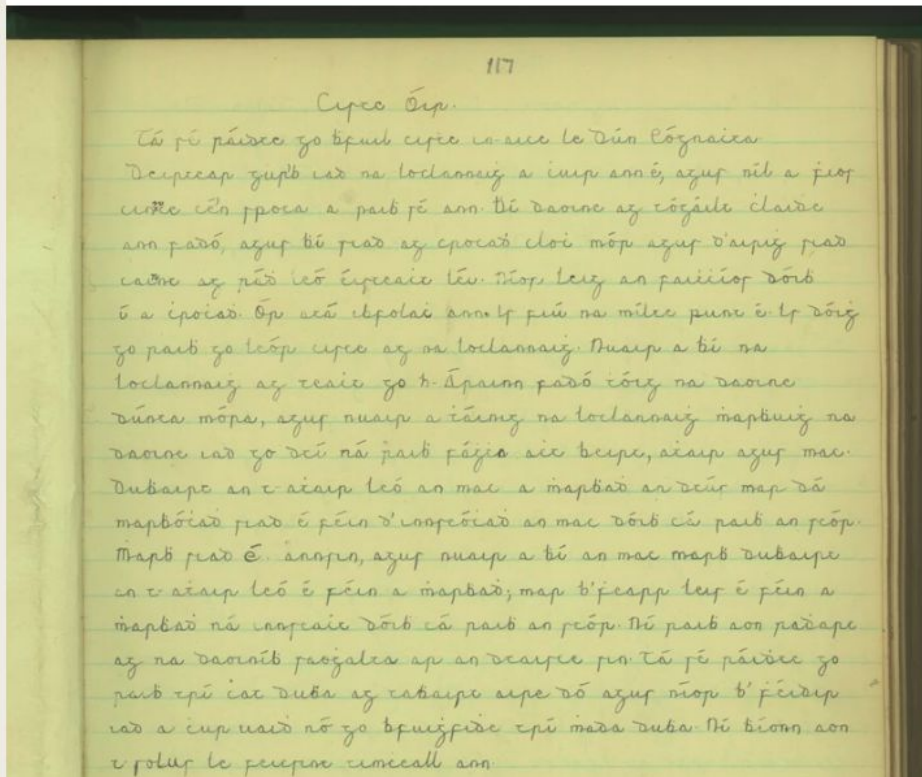 117
Ciste Óir.
Tá sé ráidte go ḃfuil ciste in-aice le Dún Eóġnaċta
Deirtear gur'b iad na Loclannaiġ a ċuir ann é, agus níl a ḟios
cinnte cén spota a raiḃ sé ann. Ḃí daoine ag tógáilt claiḋe
ann fadó, agus ḃí siad ag crocaḋ cloċ mór agus d'airiġ siad
caint ag ráḋ leó éisteaċt léi. Níor leig an faitċíos dóiḃ
í a ċrocaḋ. Ór atá i ḃfolaċ ann. Is fiú na mílte punt é. Is dóiġ
go raiḃ go leór ciste ag na Loclannaiġ. Nuair a ḃí na
Loclannaiġ ag teaċt go h-Árainn fadó ṫóig na daoine
dúnta móra, agus nuair a ṫáinig na Loclannaiġ ṁarḃuiġ na
daoine iad go dtí ná raiḃ fágṫa aċt beirt, aṫair agus mac.
Duḃairt an t-aṫair leó an mac a ṁarḃaḋ ar dtús mar dá
marḃóċaḋ siad é féin d'innseóċaḋ an mac dóiḃ cá raiḃ an stór.
Ṁarḃ siad é annsin, agus nuair a ḃí an mac marḃ duḃairt
an t-aṫair leó é féin a ṁarḃaḋ; mar b'ḟearr leis é féin a
ṁarḃaḋ ná innseaċt dóiḃ cá raiḃ an stór. Ní raiḃ aon raḋarc
ag na daoiniḃ saoġalta ar an dtaisce sin. Tá sé ráidte go
raiḃ trí ċat duḃa ag taḃairt aire dó agus níor b'ḟéidir
iad a ċur uaiḋ nó go ḃfuiġfiḋe trí ṁada duḃa. Ní ḃíonn aon
t solus le feiscint timċeall ann.